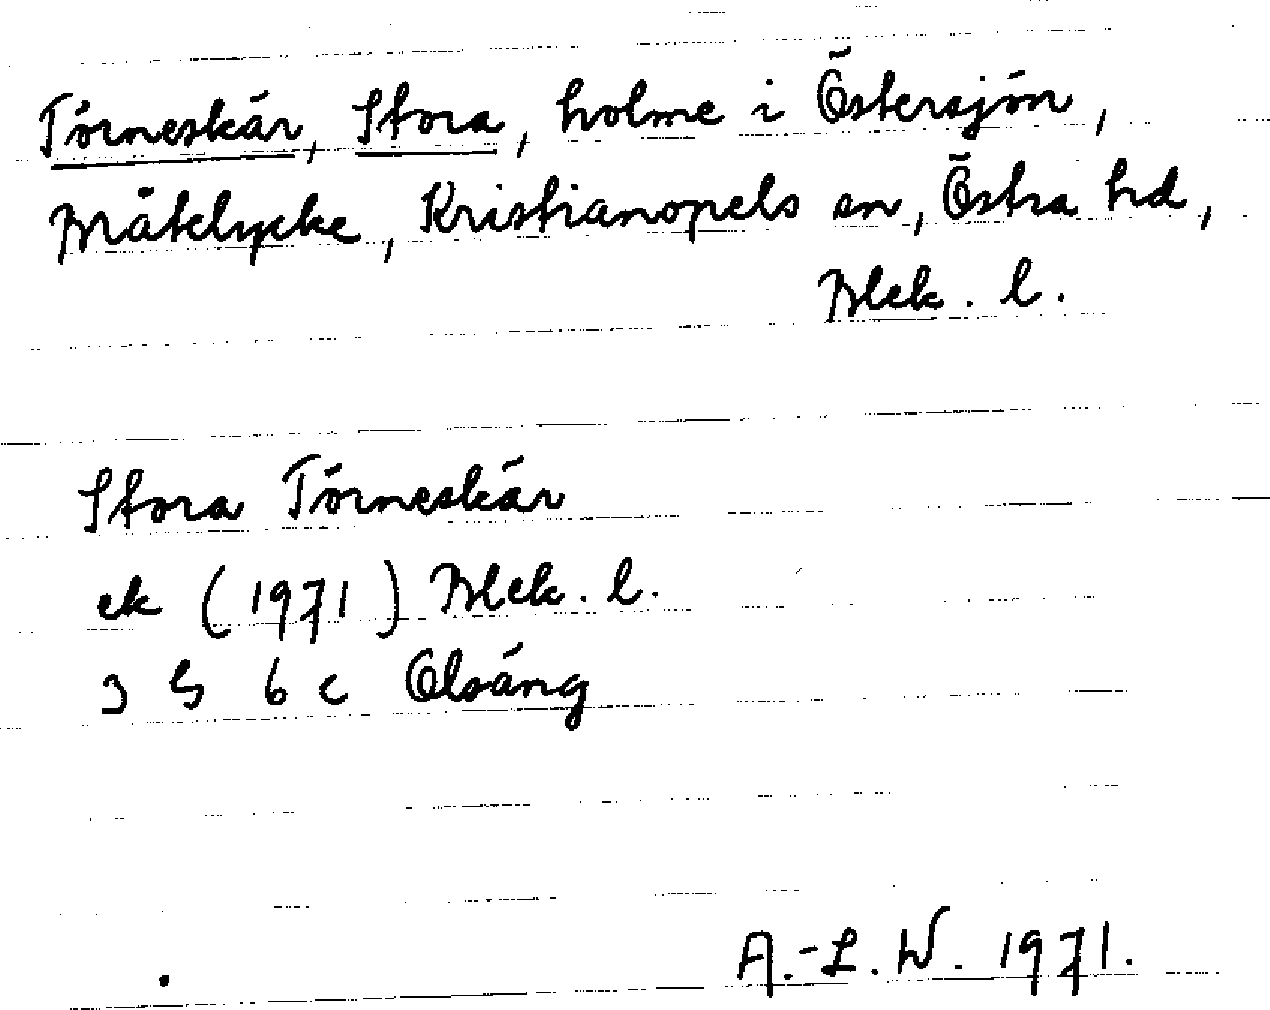 Törneskär, Stora, holme i Östersjön,
Bråtelycke, Kristianopels sn, Östra hd,
Blek. l.
Stora Törneskär
ek (1971) Blek. l.
3 G 6 c Olsäng
A.-L. W. 1971.